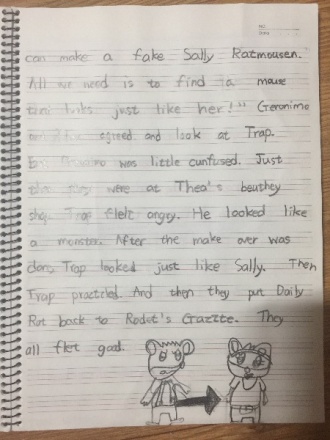 NO.
can make a fake Sally Ratmousen.
All we need is to find a mouse
looks just like her!" Geronimo
agreed and look at Trap.
was little cunfused. Just
they were at Thea's beuthey
shop. Trap flelt angry. He looked like
a monster. After the make over was
done, Trap looked just like Sally. Then
Trap practried. And then they put Daily
Rat back to Rodet's Gazette. They
all flet good.